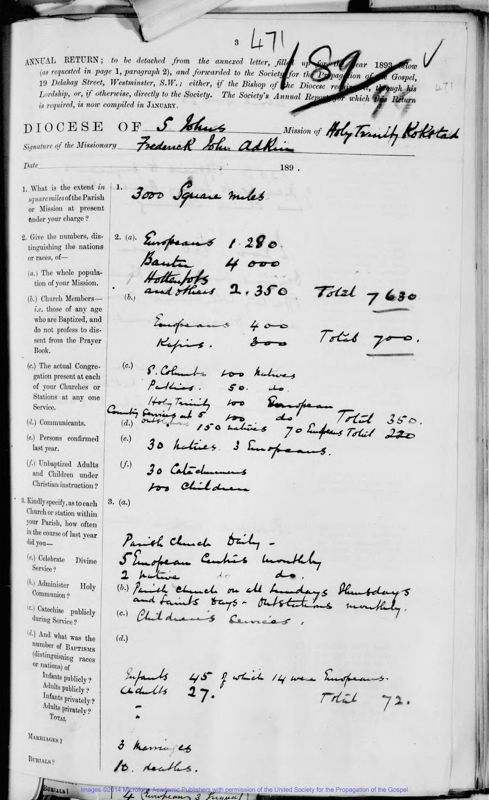 3
471
ANNUAL RETURN; to be detached from the annexed letter, filled up for the year 1893 below
(as requested in page 1, paragraph 2), and forwarded to the Society for the Propagation of the Gospel,
19 Delahay Street, Westminster, S.W.; either, if the Bishop of the Diocese require it, through his
Lordship, or, if otherwise, directly to the Society. The Society's Annual Report for which this Return
is required, is now compiled in JANUARY.
471
DIOCESE OF S Johns Mission of Holy Trinity Kokstad
Signature of the Missionary Frederick John Adkin
Date 189 .
1. What is the extent in
square miles of the Parish
or Mission at present
under your charge?
1.
3000 Square miles
2. Give the numbers, dis-
tinguishing the nations
or races, of—
(a.) The whole popula-
tion of your Mission.
(b.) Church Members—
i.e. those of any age
who are Baptized, and
do not profess to dis-
sent from the Prayer
Book.
(c.) The actual Congre-
gation present at each
of your Churches or
Stations at any one
Service.
(d.) Communicants.
(e.) Persons confirmed
last year.
(f.) Unbaptized Adults
and Children under
Christian instruction?
2. (a). Europeans 1.280.
Bantu 4000
Hottentots
and others 2.350 Total 7630
(b.)
Europeans 400
Kafirs. 300 Total 700.
(c.) S. Columba 100 natives
50. do.
Holy Trinity 100 European
Country Services at 5 100 do Total 350.
(d.) 150 natives 70 Total 220
(e.) 30 natives. 3 Europeans.
(f.) 30 Catechumens
100 Children
3. Kindly specify, as to each
Church or station within
your Parish, how often
in the course of last year
did you—
(a.) Celebrate Divine
Service?
(b.) Administer Holy
Communion?
(c.) Catechise publicly
during Service?
(d.) And what was the
number of BAPTISMS
(distinguishing races
or nations) of
Infants publicly?
Adults publicly?
Infants privately?
Adults privately?
TOTAL
3. (a.)
Parish Church Daily -
5 European Centres monthly
2 native do do.
(b.) Parish Church on all Sundays Thursdays
and Saints Days - Outstations monthly.
(c.) Children's Services.
(d.)
Infants 45 of which 14 were Europeans.
Adults 27. Total 72.
MARRIAGES?
3 Marriages
BURIALS?
10. deaths.
BURIALS?
4 European 3
Images ©2014 Microform Academic Publishers with permission of the United Society for the Propagation of the Gospel